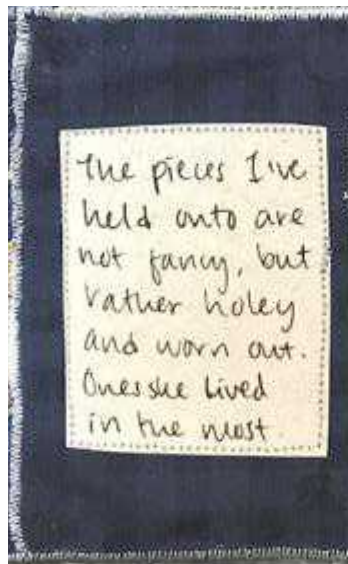 The pieces I've
held onto are
not fancy, but
rather holey
and worn out.
Ones she lived
in the most.